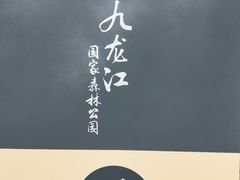 九龙江
国家森林公园